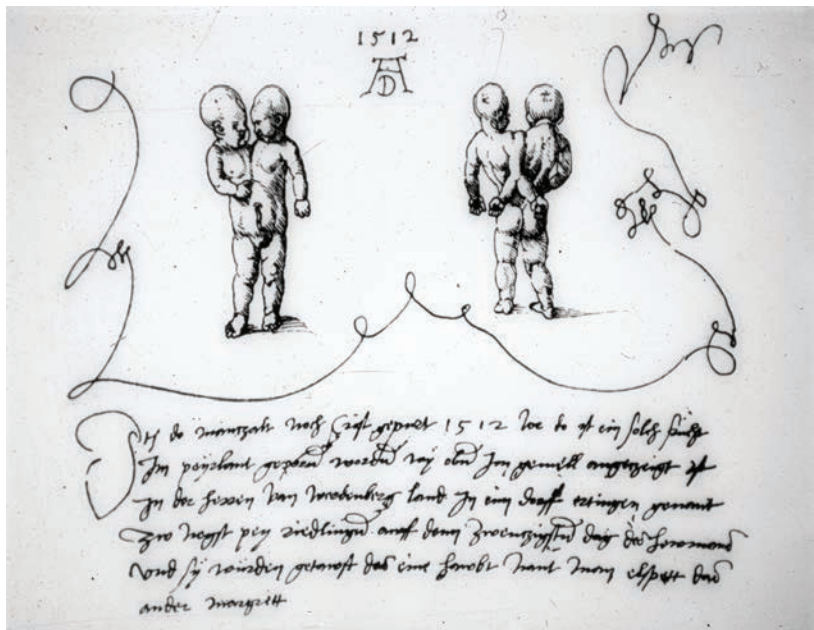 1512
AD
Itz do man czalt noch Crist gepurt 1512 Jor do ist ein solch frücht
Im peyrlant geporn wordn wy obn Im gemell angetzeigt ist
In der herren van werdenberg land In eim dorff ertingen genant
zwo negst pey riedlingn auff denn zwenzigstn dag des hewmonds
vnd sy wurden getawft das eine hawbt nant man elspett das
ander margrett